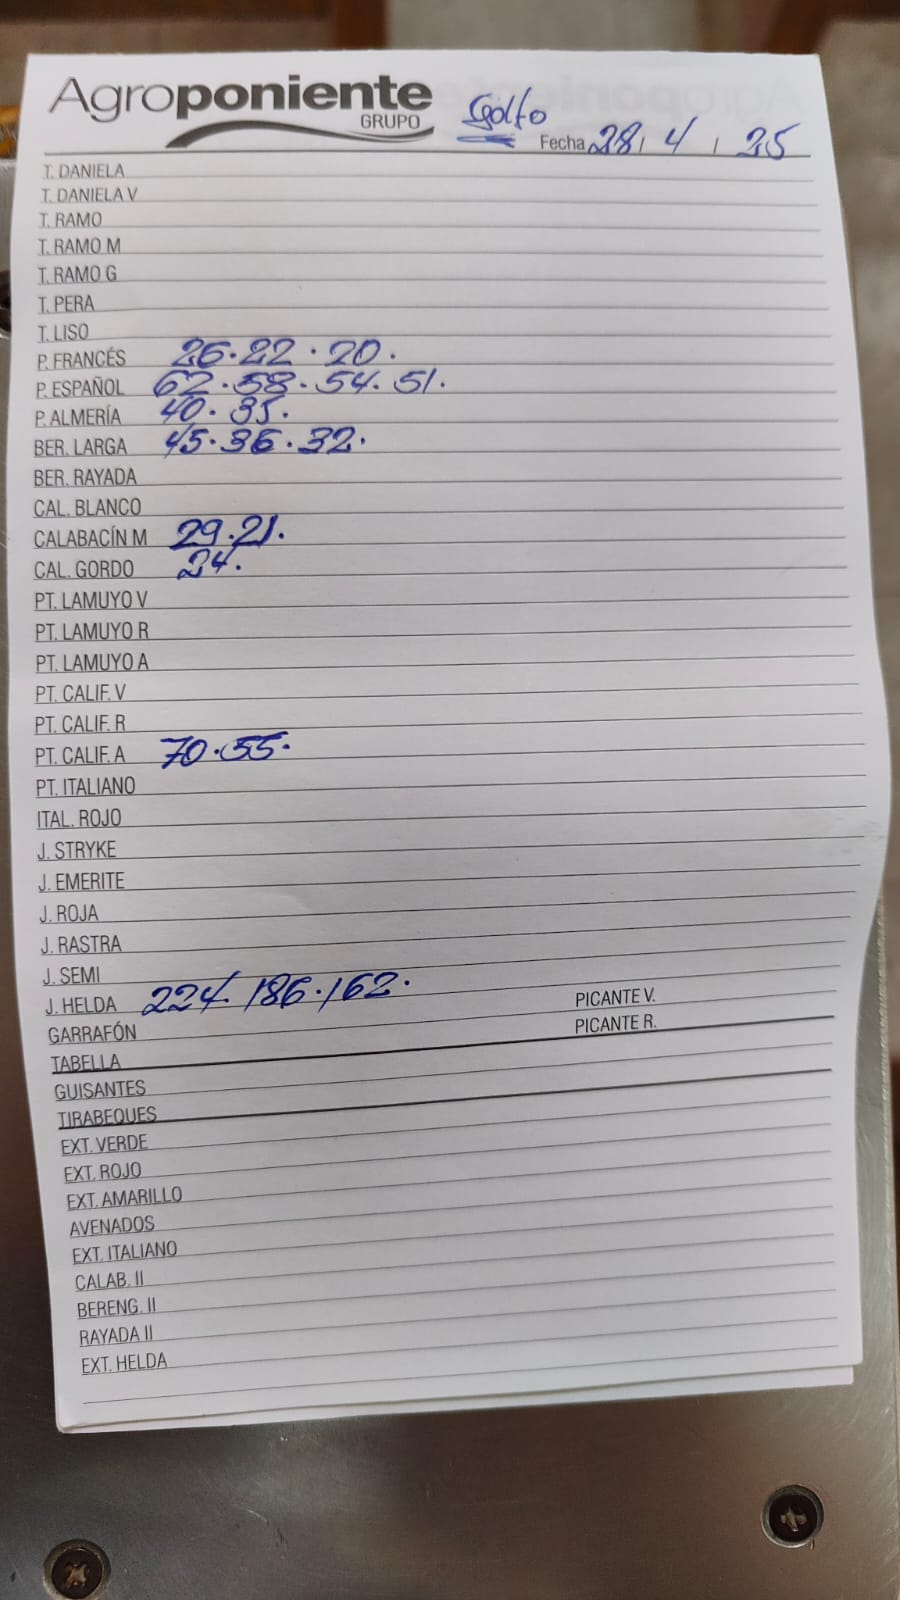 Agroponiente
GRUPO
Golfo
Fecha 28, 4, 25
T. DANIELA
T. DANIELA V
T. RAMO
T. RAMO M
T. RAMO G
T. PERA
T. LISO
P. FRANCÉS 26.22.20.
P. ESPAÑOL 62.58.54.51.
P. ALMERÍA 40.35.
BER. LARGA 45.36.32.
BER. RAYADA
CAL. BLANCO
CALABACÍN M 29.21.
CAL. GORDO 24.
PT. LAMUYO V
PT. LAMUYO R
PT. LAMUYO A
PT. CALIF. V
PT. CALIF. R
PT. CALIF. A 70.55.
PT. ITALIANO
ITAL. ROJO
J. STRYKE
J. EMERITE
J. ROJA
J. RASTRA
J. SEMI
J. HELDA 224.186.162. PICANTE V.
GARRAFÓN PICANTE R.
TABELLA
GUISANTES
TIRABEQUES
EXT. VERDE
EXT. ROJO
EXT. AMARILLO
AVENADOS
EXT. ITALIANO
CALAB. II
BERENG. II
RAYADA II
EXT. HELDA